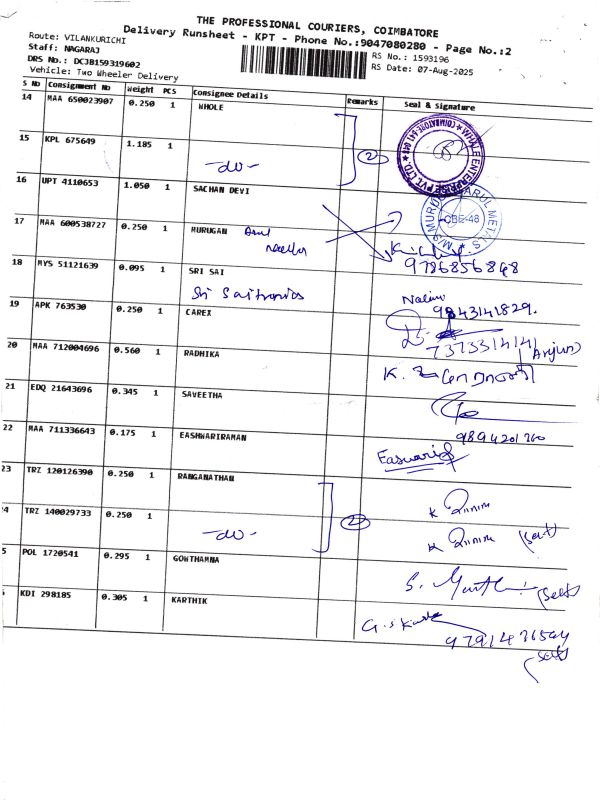 THE PROFESSIONAL COURIERS, COIMBATORE
Delivery Runsheet - KPT - Phone No.:9047080280 - Page No.:2
Route: VILANKURICHI
Staff: NAGARAJ
DRS No.: DCJB159319602
Vehicle: Two Wheeler Delivery
RS No.: 1593196
RS Date: 07-Aug-2025
S No Consignment No Weight PCS Consignee Details Remarks Seal & Signature
14 MAA 650023907 0.250 1 WHOLE
15 KPL 675649 1.185 1 -do- 2
16 UPT 4110653 1.050 1 SACHAN DEVI
17 MAA 600538727 0.250 1 MURUGAN
9786856868
18 MYS 51121639 0.095 1 SRI SAI
Sri Saitronics
9843141829.
19 APK 763530 0.250 1 CAREX
7373314141
20 MAA 712004696 0.560 1 RADHIKA
21 EDQ 21643696 0.345 1 SAVEETHA
9894201760
22 MAA 711336643 0.175 1 EASHWARIRAMAN
Easwari
23 TRZ 120126390 0.250 1 RANGANATHAN
4 TRZ 140029733 0.250 1 -do- 2
(Self)
5 POL 1720541 0.295 1 GOWTHAMNA
(Self)
KDI 298185 0.305 1 KARTHIK
(Self)